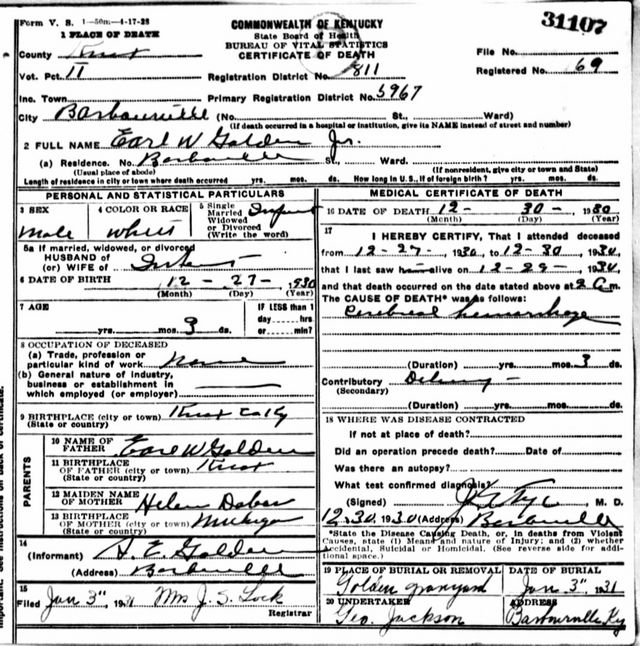 Form V. S. 1—50m—4-17-28
31107
COMMONWEALTH OF KENTUCKY
State Board of Health
BUREAU OF VITAL STATISTICS
CERTIFICATE OF DEATH
1 PLACE OF DEATH
County Knox
File No.
Vot. Pct. 11
Registration District No. 811
Registered No. 69
Inc. Town
Primary Registration District No. 5967
City Barbourville (No. St., Ward)
(If death occurred in a hospital or institution, give its NAME instead of street and number)
2 FULL NAME Earl W Golden Jr.
(a) Residence. No. Barbourville St., Ward.
(Usual place of abode) (If nonresident, give city or town and State)
Length of residence in city or town where death occurred yrs. mos. ds. How long in U. S., if of foreign birth? yrs. mos. ds.
PERSONAL AND STATISTICAL PARTICULARS
3 SEX
4 COLOR OR RACE
5 Single
Married
Widowed
or Divorced
(Write the word)
Infant
Male White
5a If married, widowed, or divorced
HUSBAND of
(or) WIFE of Infant
6 DATE OF BIRTH 12 - 27 - 1930
(Month) (Day) (Year)
7 AGE
yrs. mos. 3 ds.
IF LESS than 1
day hrs.
or min.?
8 OCCUPATION OF DECEASED
(a) Trade, profession or
particular kind of work None
(b) General nature of industry,
business or establishment in
which employed (or employer)
9 BIRTHPLACE (city or town) Knox Co Ky
(State or country)
PARENTS
10 NAME OF
FATHER Earl W Golden
11 BIRTHPLACE
OF FATHER (city or town) Knox
(State or country)
12 MAIDEN NAME
OF MOTHER Helen
13 BIRTHPLACE
OF MOTHER (city or town) Michigan
(State or country)
14
(Informant) Golden
(Address) Barbourville
15
Filed Jan 3", 1931 Mrs J. S. Lock
Registrar
MEDICAL CERTIFICATE OF DEATH
16 DATE OF DEATH 12 - 30 - 1930
(Month) (Day) (Year)
17
I HEREBY CERTIFY, That I attended deceased
from 12-27-, 1930, to 12-30, 1930,
that I last saw h alive on 12-29-, 1930,
and that death occurred on the date stated above at 2 a m.
The CAUSE OF DEATH* was as follows:
Cerebral hemorrhage
(Duration) yrs. mos. 3 ds.
Contributory Delivery -
(Secondary)
(Duration) yrs. mos. ds.
18 WHERE WAS DISEASE CONTRACTED
If not at place of death?
Did an operation precede death? Date of
Was there an autopsy?
What test confirmed diagnosis?
(Signed) M. D.
12-30, 1930 (Address) Barbourville
*State the Disease Causing Death, or, in deaths from Violent
Causes, state (1) Means and nature of Injury; and (2) whether
Accidental, Suicidal or Homicidal. (See reverse side for addi-
tional space.)
19 PLACE OF BURIAL OR REMOVAL DATE OF BURIAL
Golden graveyard Jan 3", 1931
20 UNDERTAKER ADDRESS
Geo. Jackson Barbourville Ky